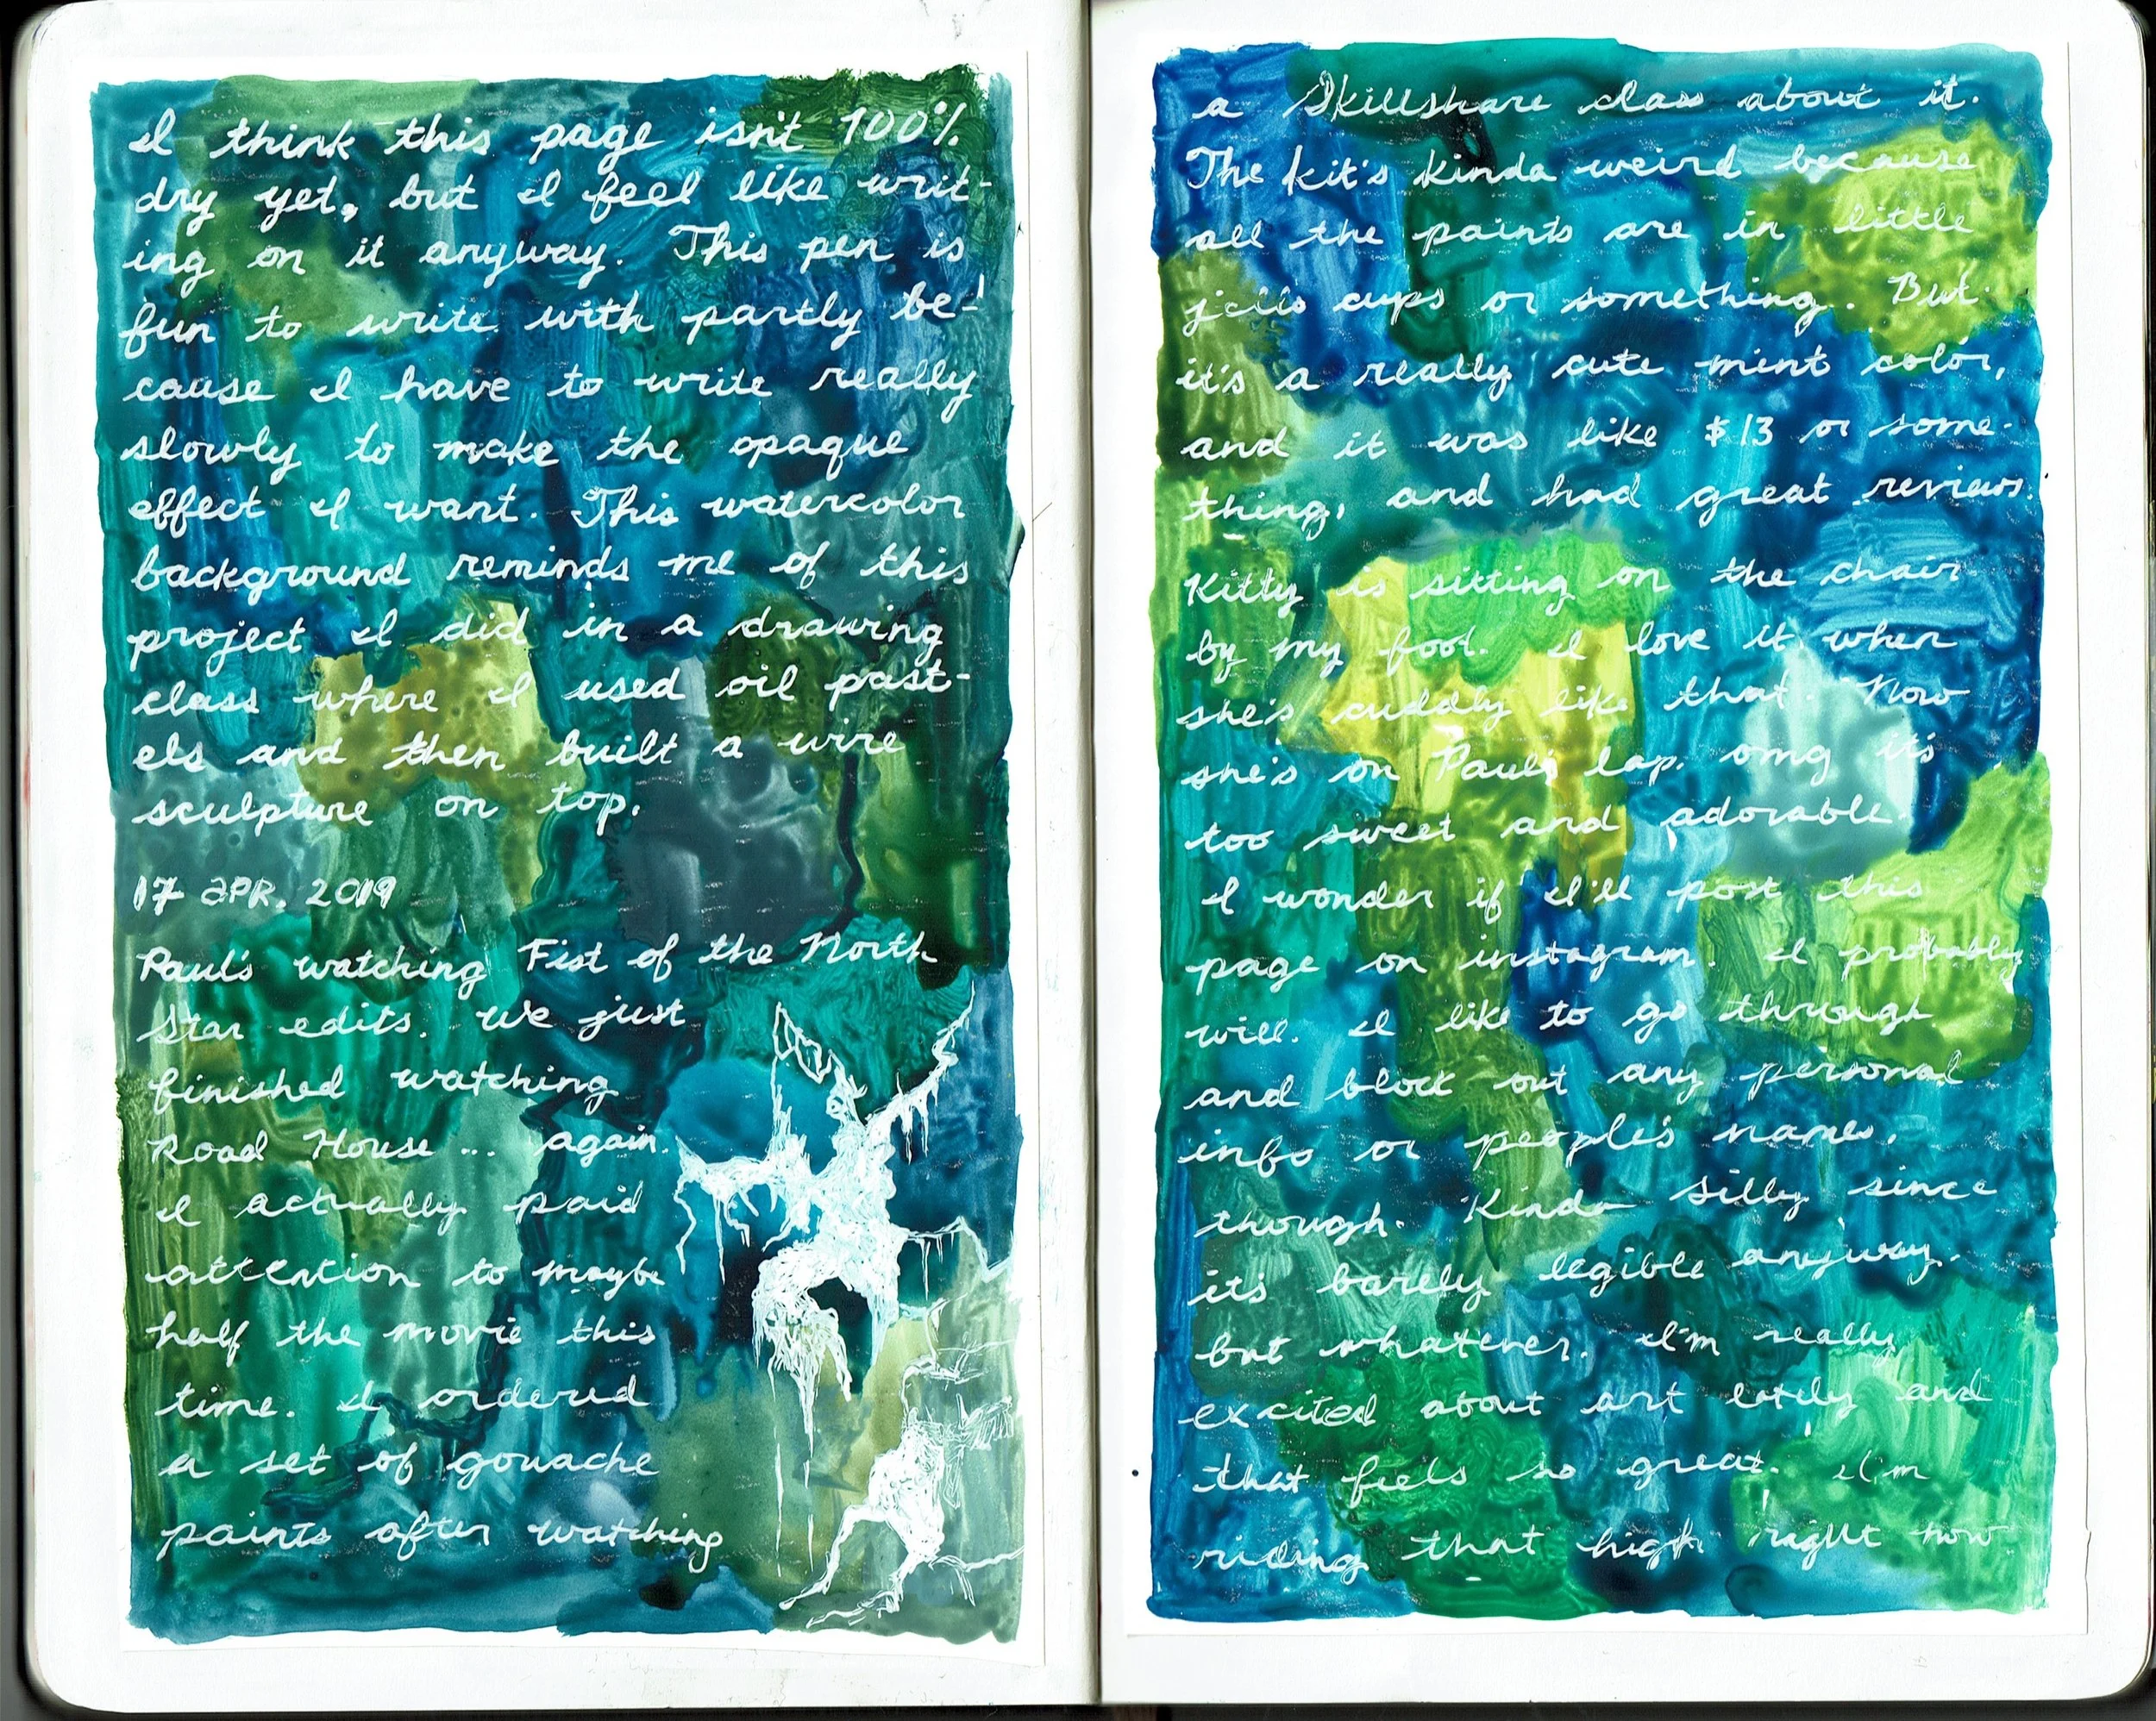 I think this page isn't 100%
dry yet, but I feel like writ-
ing on it anyway. This pen is
fun to write with partly be-
cause I have to write really
slowly to make the opaque
effect I want. This watercolor
background reminds me of this
project I did in a drawing
class where I used oil past-
els and then built a wire
sculpture on top.
17 APR. 2019
Paul's watching Fist of the North
Star edits. We just
finished watching
Road House... again.
I actually paid
attention to maybe
half the movie this
time. I ordered
a set of gouache
paints after watching
a Skillshare class about it.
The kit's kinda weird because
all the paints are in little
jello cups or something. But
it's a really cute mint color,
and it was like $13 or some-
thing, and had great reviews.
Kitty is sitting on the chair
by my foot. I love it when
she's cuddly like that. Now
she's on Paul's lap. omg it's
too sweet and adorable.
I wonder if I'll post this
page on instagram. I probably
will. I like to go through
and block out any personal
info or people's names.
though. Kinda silly since
it's barely legible anyway.
but whatever. I'm really
excited about art lately and
that feels so great. I'm
riding that high right now